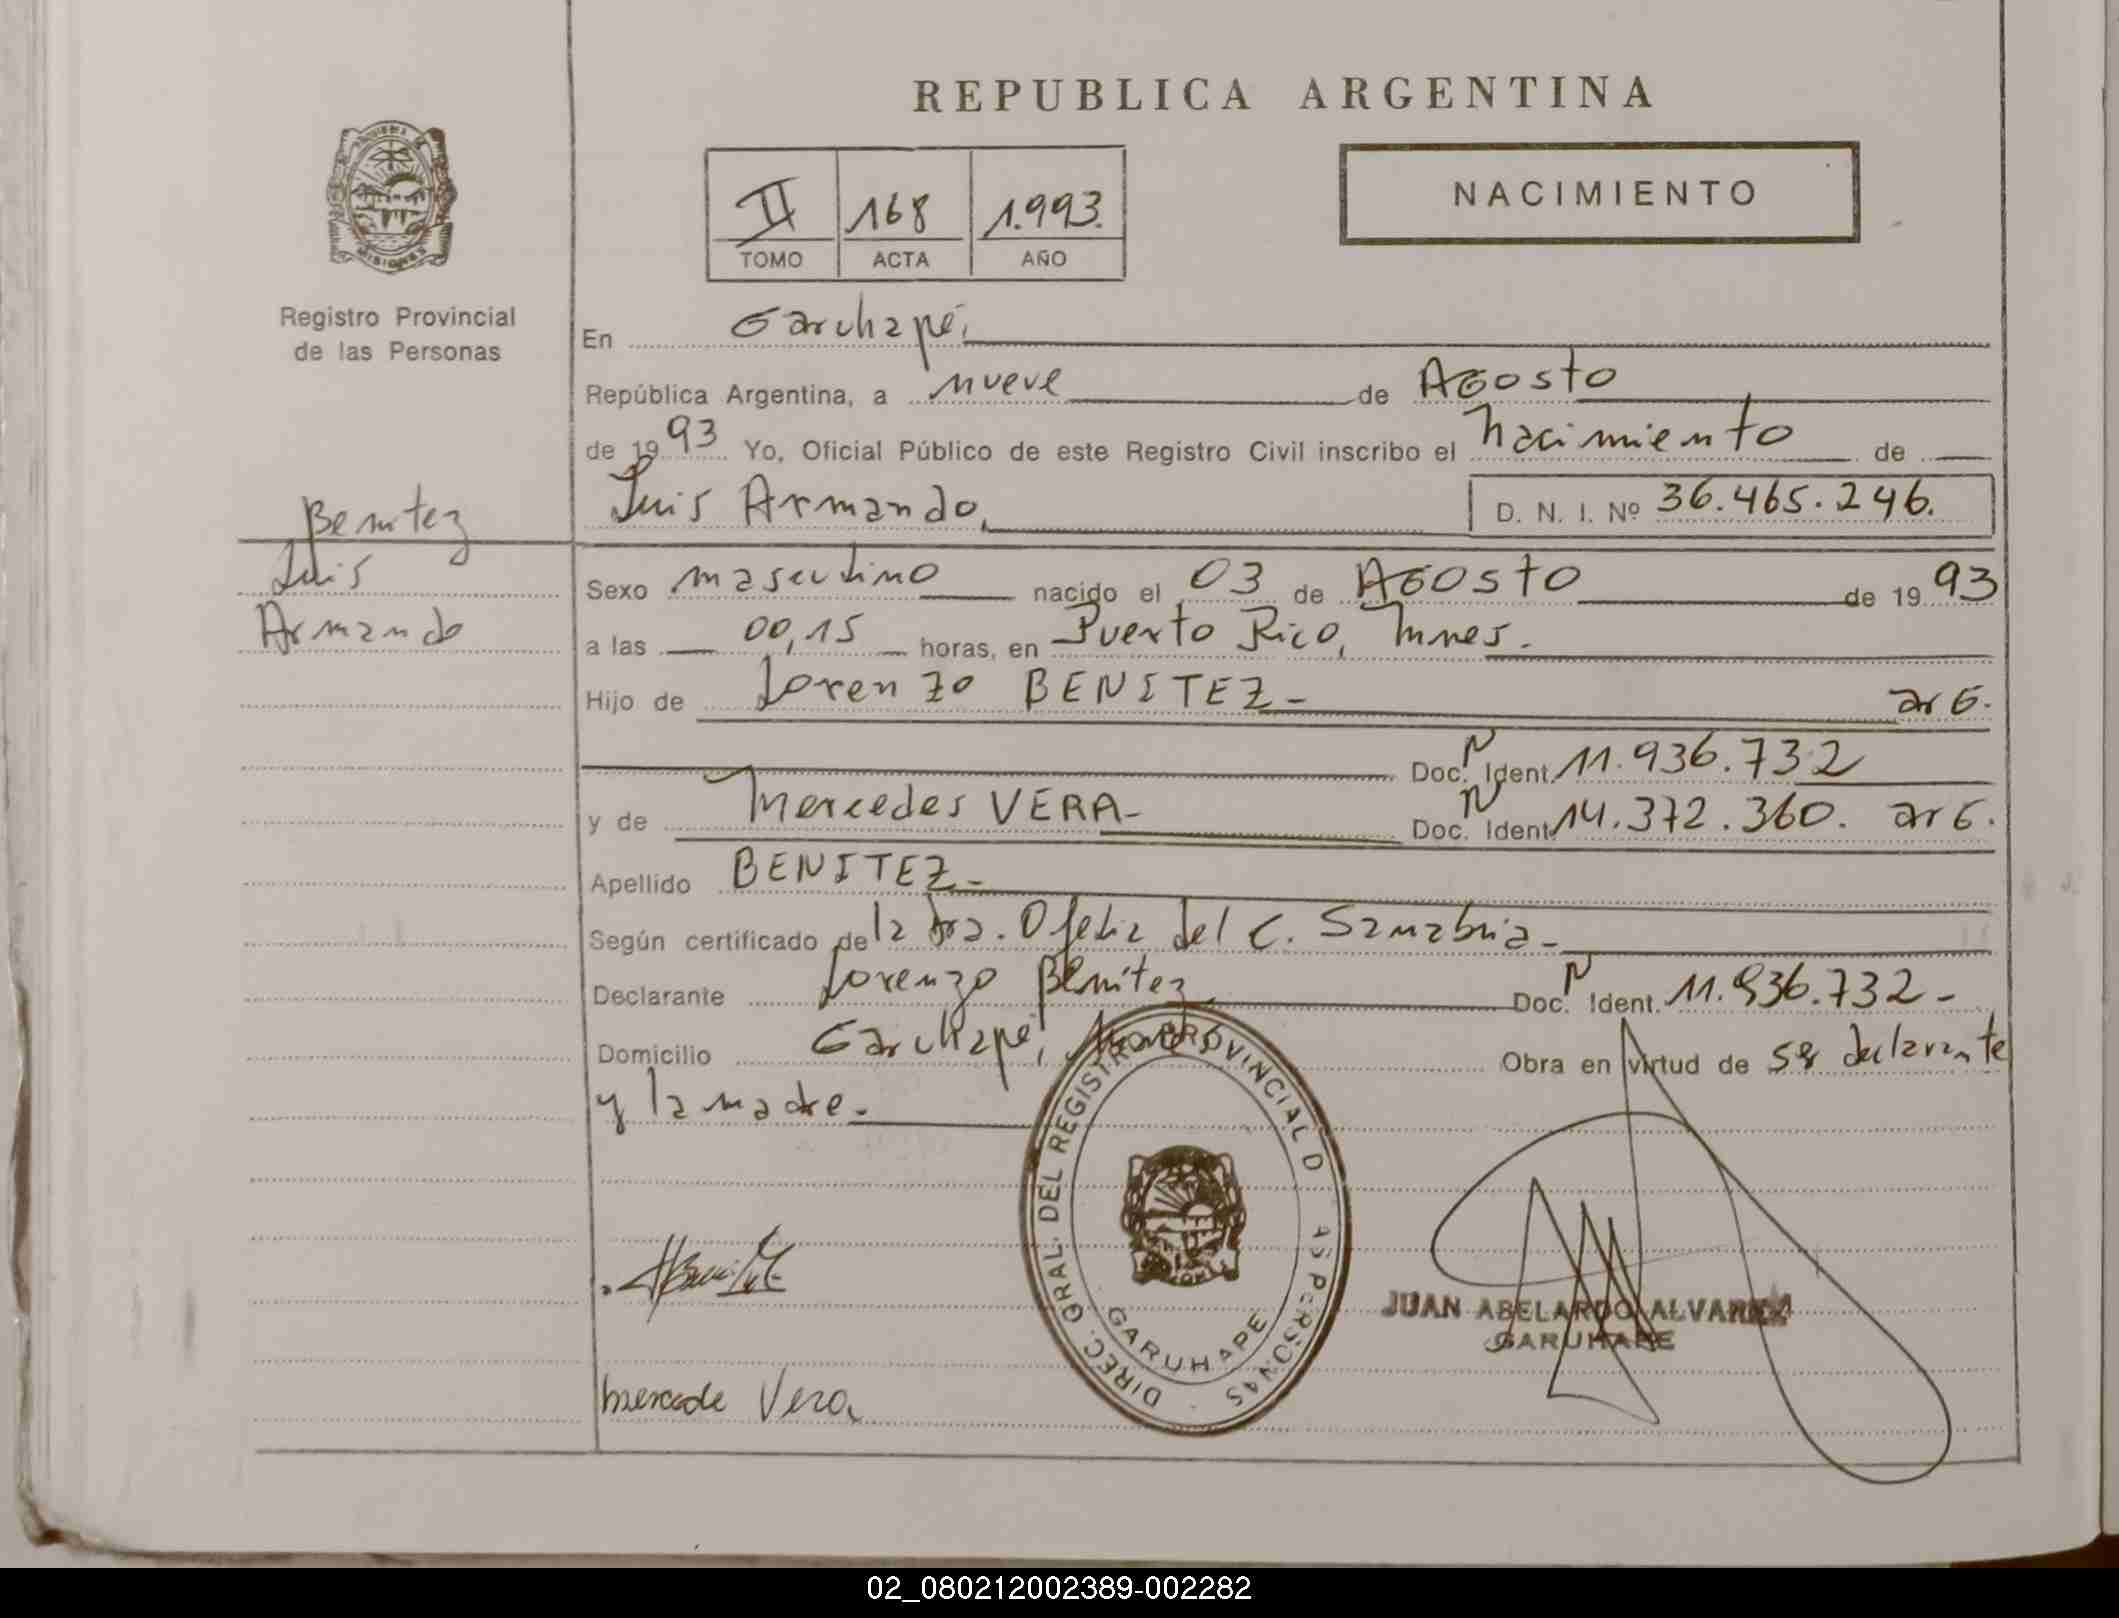 REPUBLICA ARGENTINA
MISIONES
II 168 1.993.
TOMO ACTA AÑO
NACIMIENTO
Registro Provincial
de las Personas
En Garuhapé,
República Argentina, a nueve de Agosto
de 1993 Yo, Oficial Público de este Registro Civil inscribo el nacimiento de
Luis Armando, D. N. I. Nº 36.465.246.
Benitez
Luis
Armando
Sexo masculino nacido el 03 de Agosto de 1993
a las 00,15 horas, en Puerto Rico, Mnes.
Hijo de Lorenzo BENITEZ - arg.
Doc. N Ident. 11.936.732
y de Mercedes VERA - Doc. N Ident. 14.372.360. arg.
Apellido BENITEZ -
Según certificado de la Dra. Ofelia del C. Sanabria -
Declarante Lorenzo Benítez Doc. N Ident. 11.936.732 -
Domicilio Garuhapé, Mnes. Obra en virtud de ser declarante
y la madre.
DIREC. GRAL. DEL REGISTRO PROVINCIAL D AS PERSONAS
MISIONES
GARUHAPE
JUAN ABELARDO ALVAREZ
GARUHAPE
mercede Vera
02_080212002389-002282